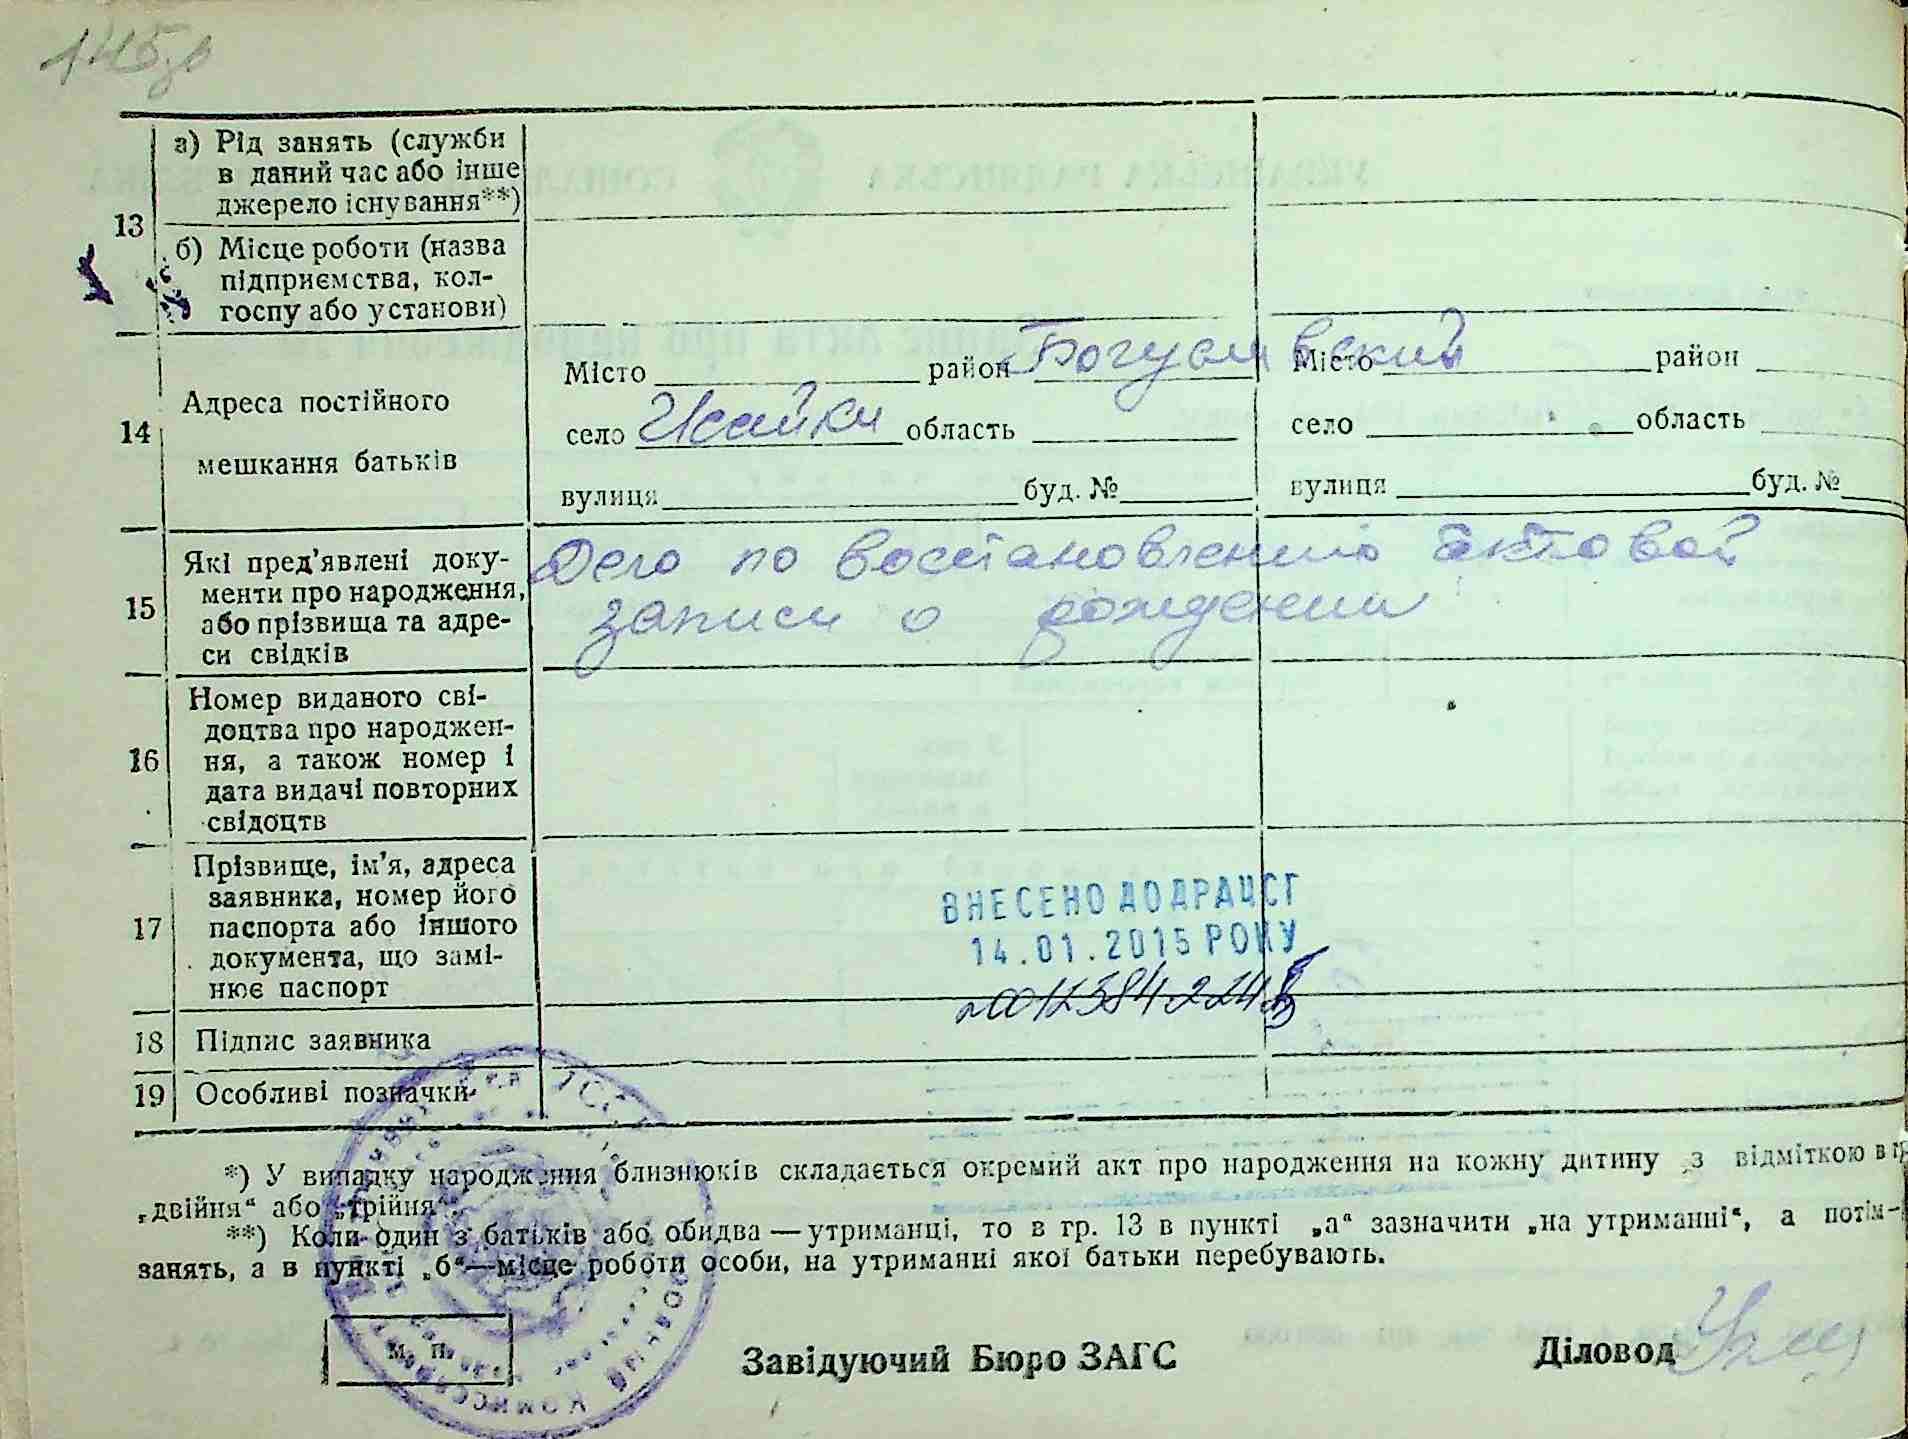 13
а) Рід занять (служби
в даний час або інше
джерело існування**)
б) Місце роботи (назва
підприємства, кол-
госпу або установи)
14
Адреса постійного
мешкання батьків
Місто район Богуславский
село Исайки область
вулиця буд. №
Місто район
село область
вулиця буд. №
15
Які пред'явлені доку-
менти про народження,
або прізвища та адре-
си свідків
Дело по восстановлению актовой
записи о рождении
16
Номер виданого сві-
доцтва про народжен-
ня, а також номер і
дата видачі повторних
свідоцтв
17
Прізвище, ім'я, адреса
заявника, номер його
паспорта або іншого
документа, що замі-
нює паспорт
ВНЕСЕНО ДО ДРАЦСГ
14.01.2015 РОКУ
18 Підпис заявника
19 Особливі позначки
*) У випадку народження близнюків складається окремий акт про народження на кожну дитину з відміткою в
„двійня“ або „трійня“.
**) Коли один з батьків або обидва — утриманці, то в гр. 13 в пункті „а“ зазначити „на утриманні“, а потім—
занять, а в пункті „б“—місце роботи особи, на утриманні якої батьки перебувають.
М. П.
Завідуючий Бюро ЗАГС
Діловод